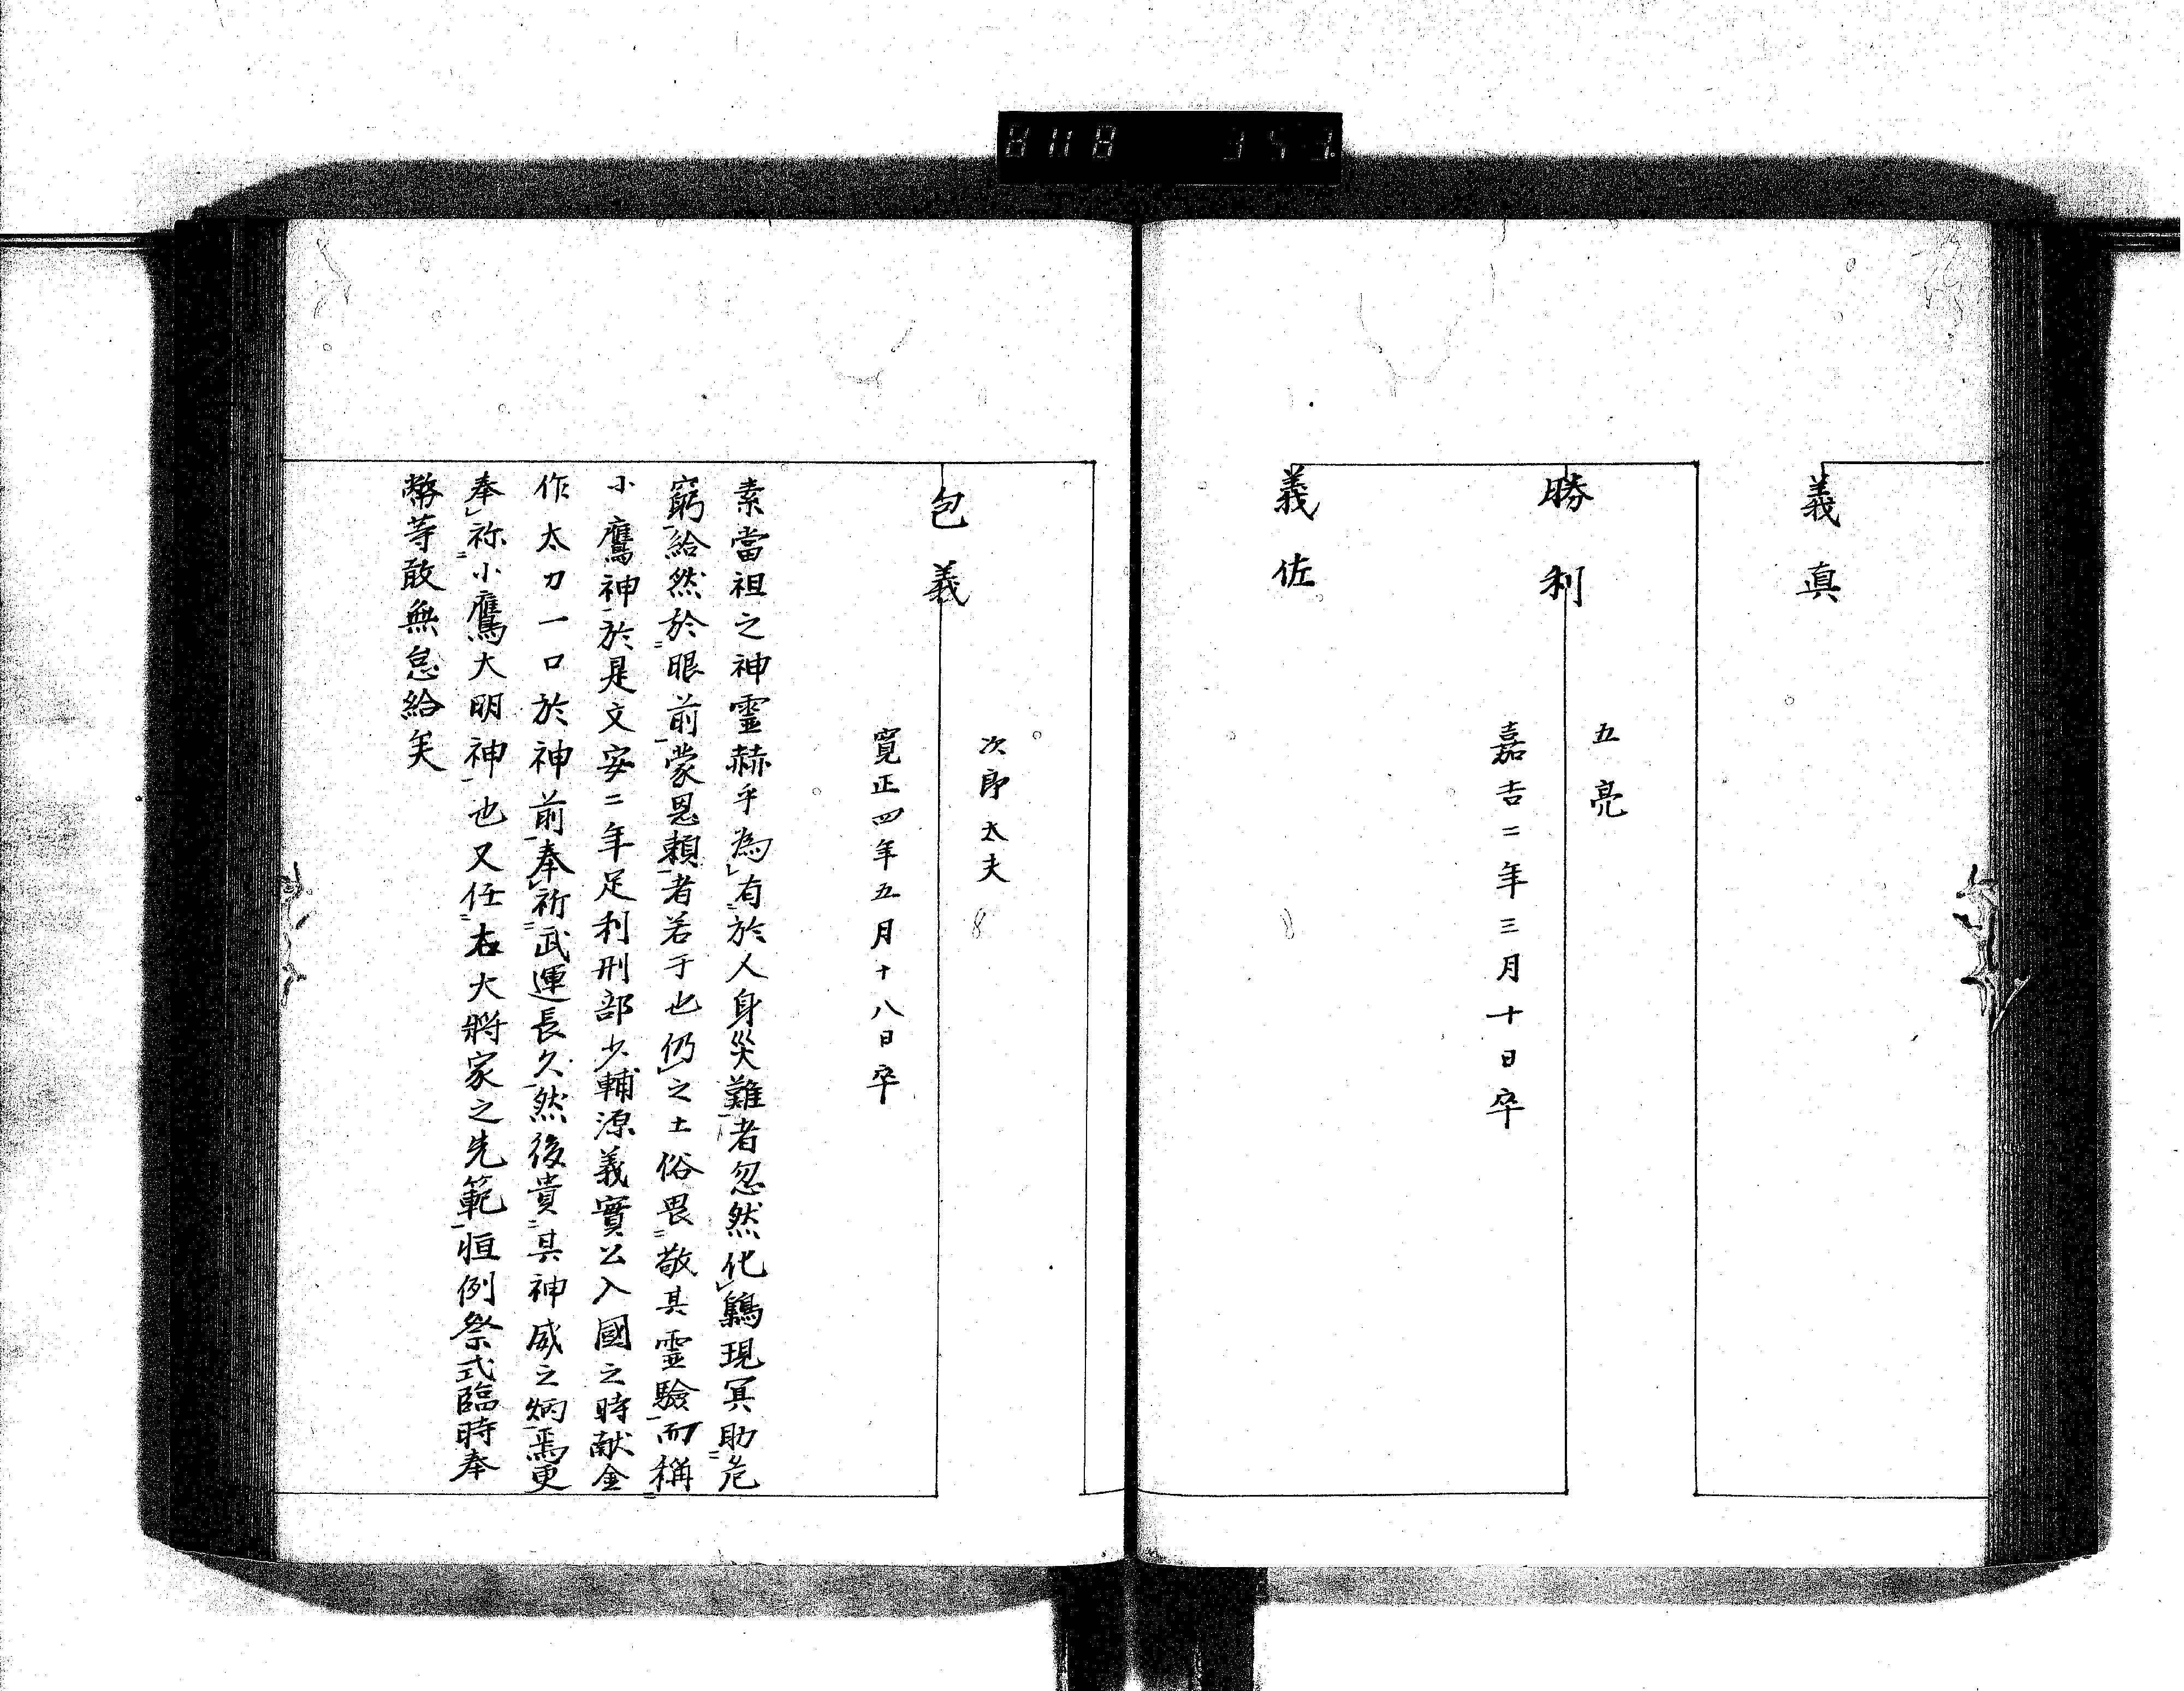 義真
勝利
五亮
嘉吉二年三月十日卒
義佐
包義
次郎太夫
寛正四年五月十八日卒
素當祖之神霊赫乎為有於人身災難者忽然化鷦現冥助危
窮給然於眼前蒙恩頼者若于也仍之土俗畏敬其霊驗而稱
小鷹神於是文安二年足利刑部少輔源義實公入國之時献金
作太刀一口於神前奉祈武運長久然後貴其神威之炳焉更
奉祢小鷹大明神也又任右大將家之先範恒例祭式臨時奉
幣等敢無怠給矣